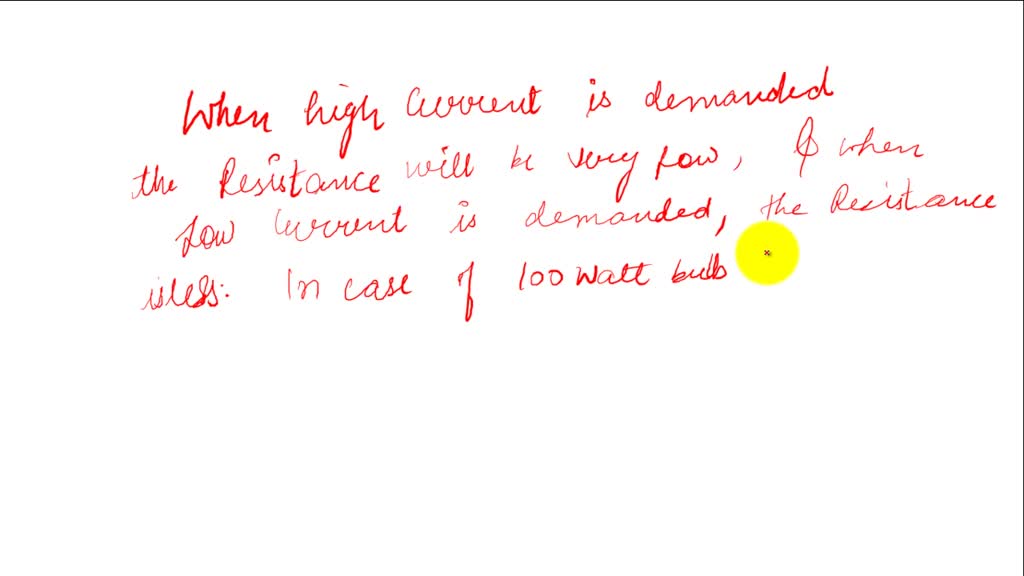 When high Current is demanded
the Resistance will be very low, & when
low Current is demanded, the Resistance
is less. In case of 100 watt bulb